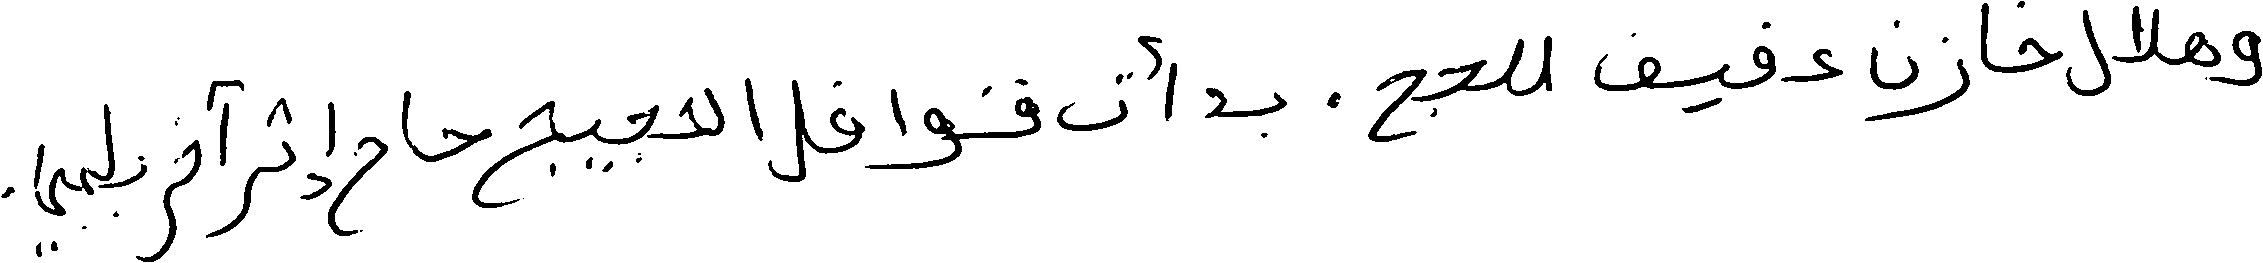 وهلال خازن عفيف للحج. بدأت قوافل الحجيج حاج إثر آخر بلبي.